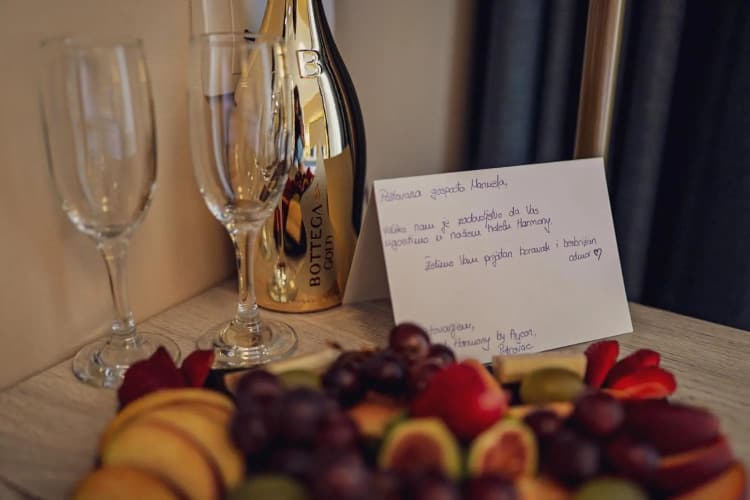 B
BOTTEGA
GOLD
Poštovana gospođo Manuela,
Veliko nam je zadovoljstvo da Vas
ugostimo u našem hotelu Harmony.
Želimo Vam prijatan boravak i bezbrižan
odmor
Harmony by Aycon,
Petrovac